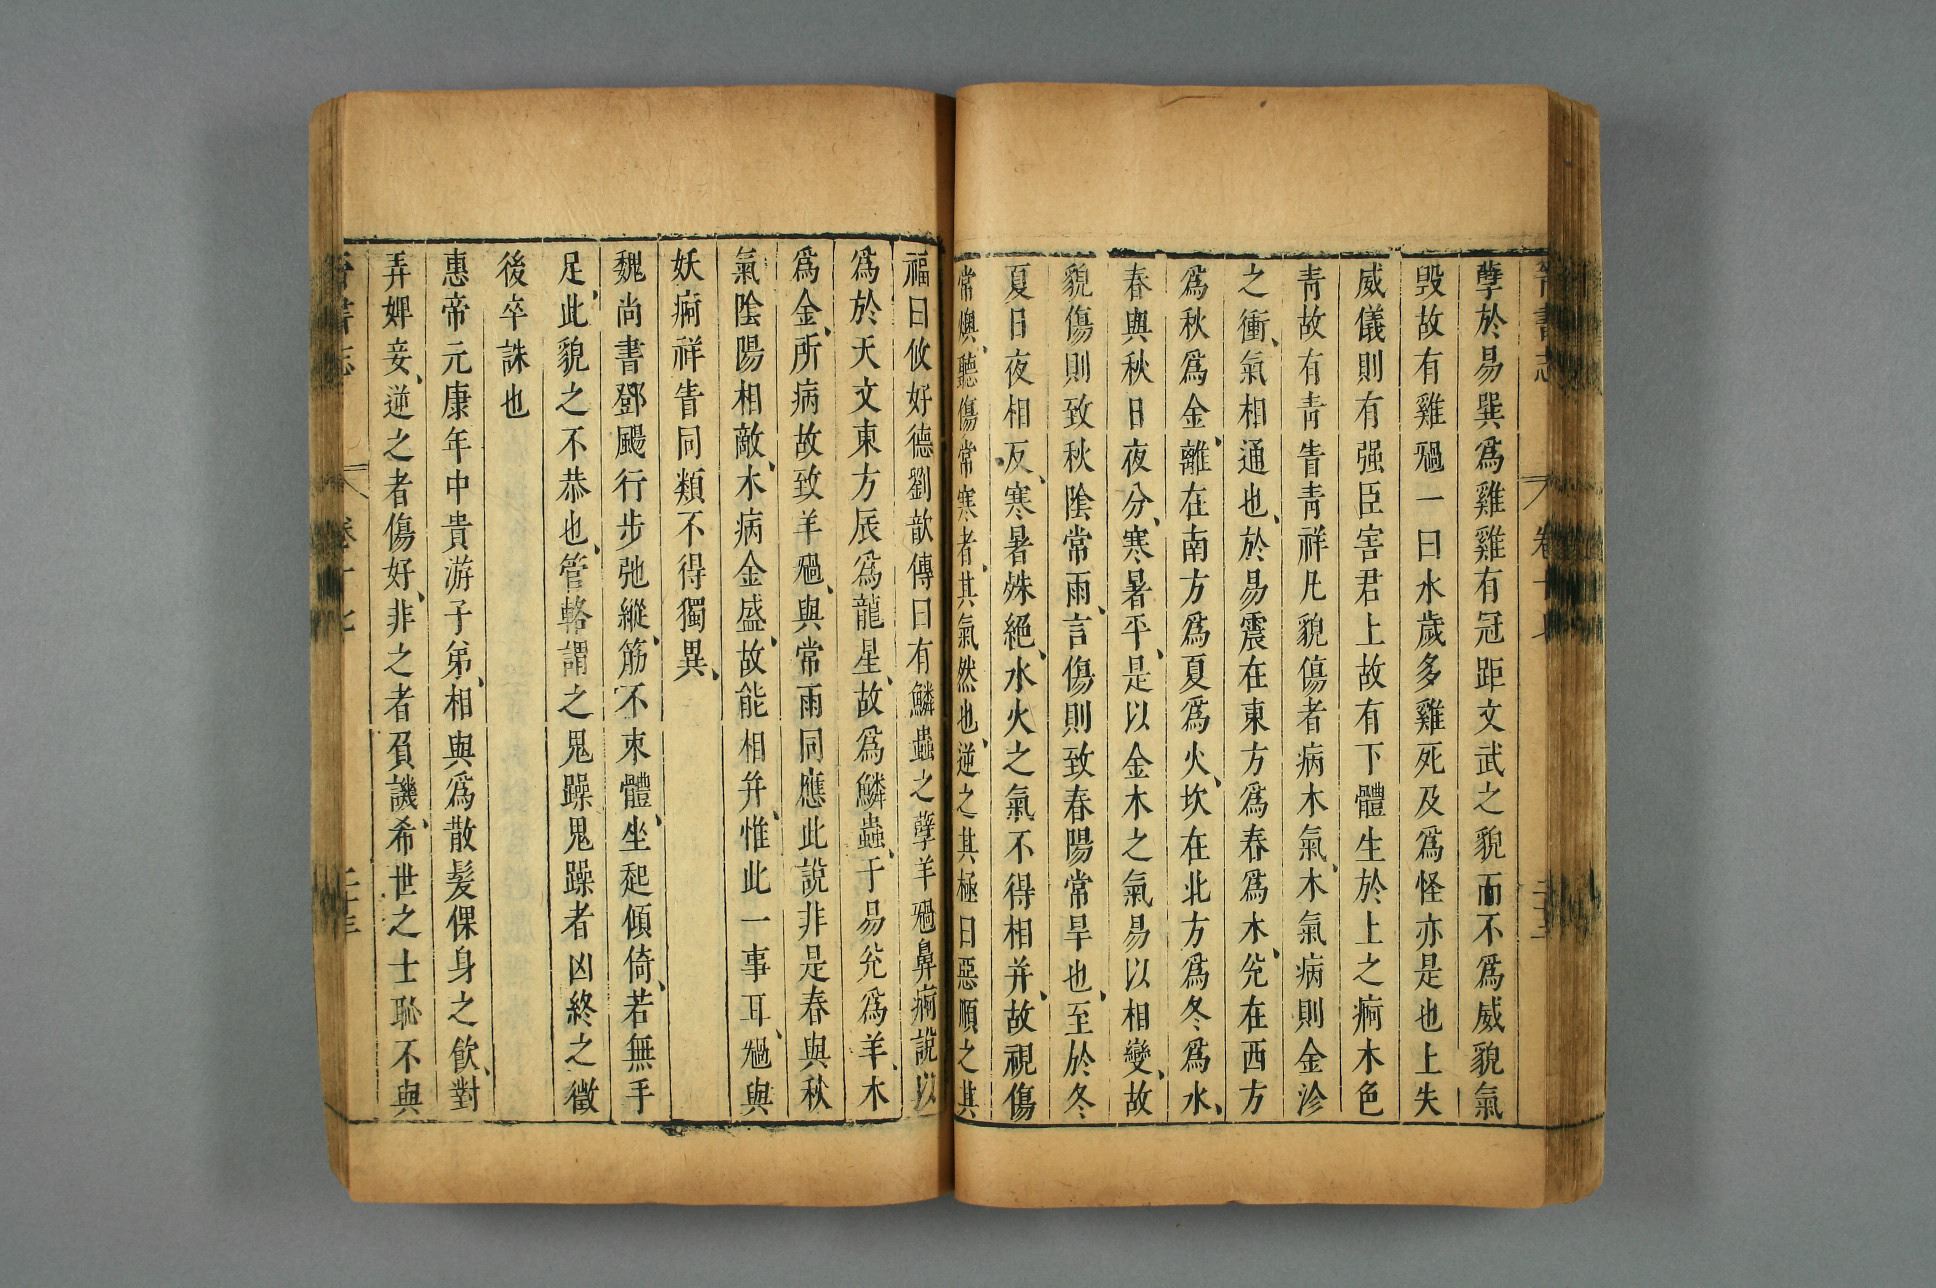 孽於易巽爲雞雞有冠距文武之貌而不爲威貌氣
毁故有雞𥚽一曰水歲多雞死及爲怪亦是也上失
威儀則有强臣害君上故有下體生於上之痾木色
青故有青眚青祥凡貌傷者病木氣木氣病則金沴
之衝氣相通也於易震在東方爲春爲木兌在西方
爲秋爲金離在南方爲夏爲火坎在北方爲冬爲水
春與秋日夜分寒暑平是以金木之氣易以相變故
貌傷則致秋陰常雨言傷則致春陽常旱也至於冬
夏日夜相反寒暑殊絕水火之氣不得相并故視傷
常燠聽傷常寒者其氣然也逆之其極曰惡順之其
福曰攸好德劉歆傳曰有鱗蟲之孽羊𥚽鼻痾說以
爲於天文東方辰爲龍星故爲鱗蟲于易兌爲羊木
爲金所病故致羊𥚽與常雨同應此說非是春與秋
氣陰陽相敵木病金盛故能相并惟此一事耳𥚽與
妖痾祥眚同類不得獨異
魏尚書鄧颺行步弛縱筋不束體坐起傾倚若無手
足此貌之不恭也管輅謂之鬼躁鬼躁者凶終之徵
後卒誅也
惠帝元康年中貴游子弟相與爲散髮倮身之飲對
弄婢妾逆之者傷好非之者負譏希世之士恥不與
晉書志 卷十七